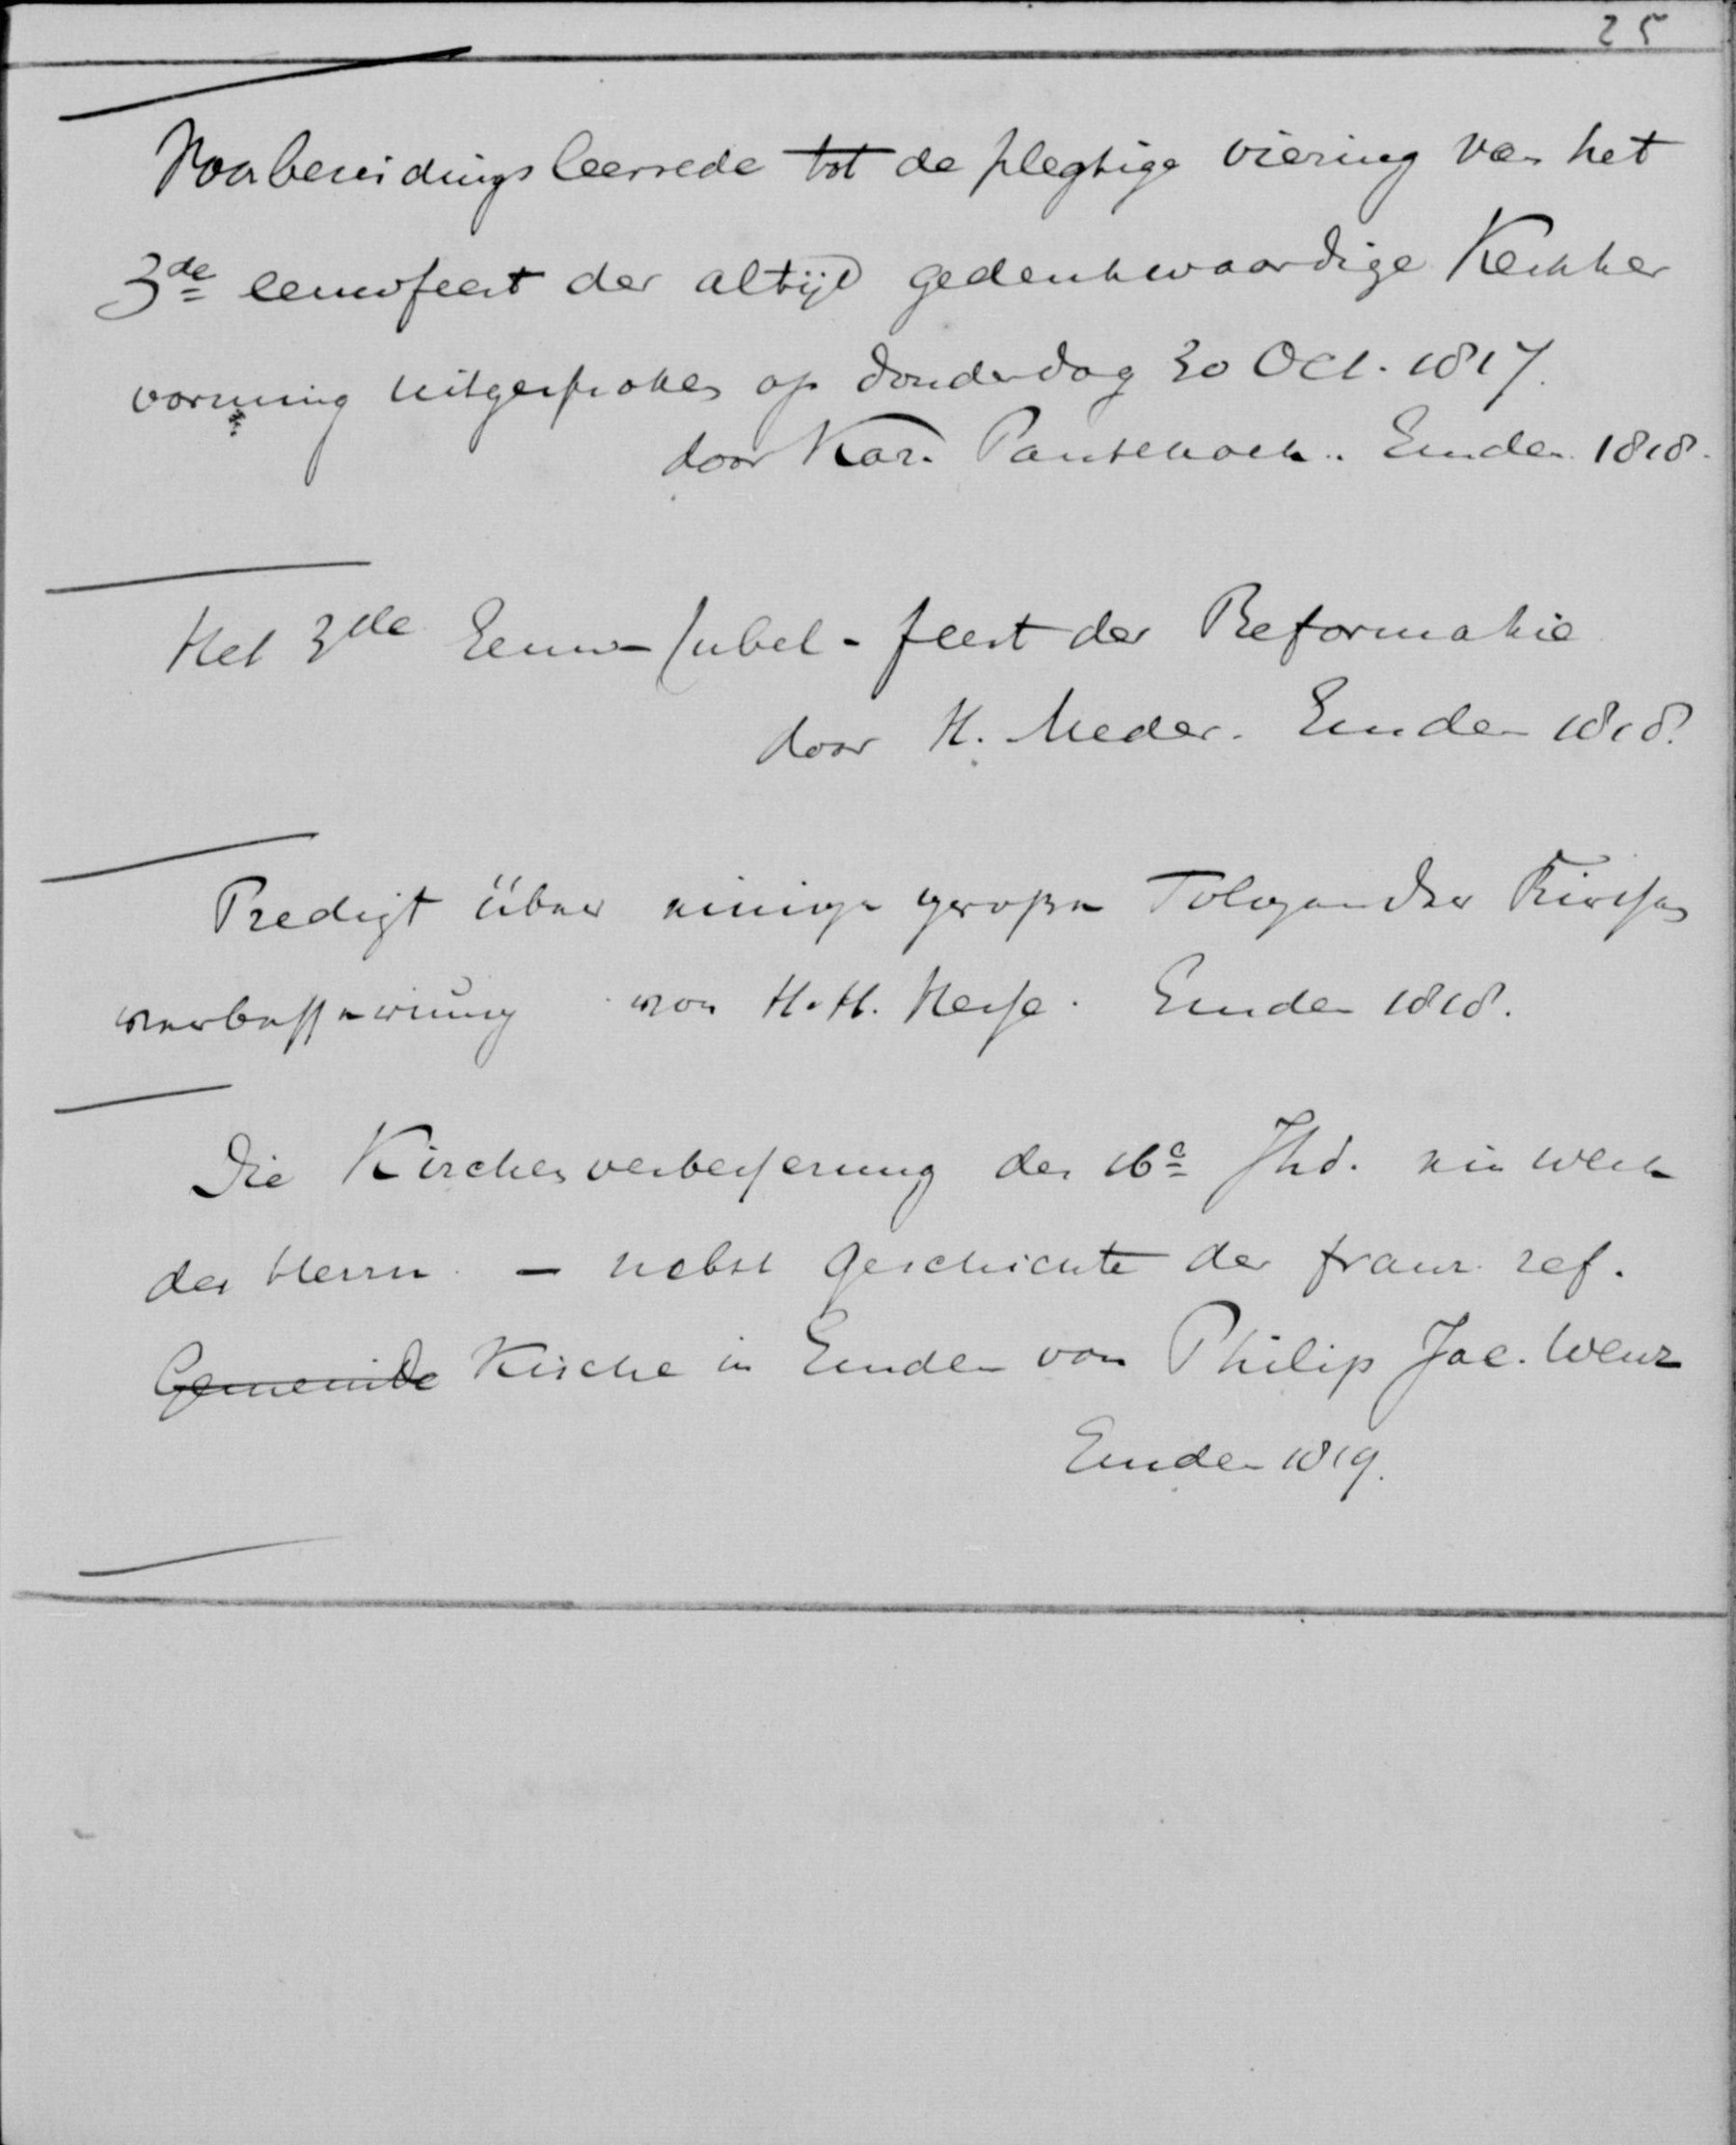 25
Voorbereidingsleerrede tot de plegtige viering van het
3de eeuwfeest der altijd gedenkwaardige Kerkher
vorming uitgesproken op Donderdag 30 Oct. 1817.
door Kar. Pantekoek. Emden 1818.
Het 3de Eeuw-Jubel-feest der Reformatie
door H. Meder. Emden 1818.
Predigt über einige große Folgen der Kirchen
verbesserung von H. H. Hesse. Emden 1818.
Die Kirchenverbesserung des 16e Jhd. ein Werk
des Herrn. — nebst Geschichte der franz. ref.
Gemeinde Kirche in Emden von Philip Jac. Wenz
Emden 1819.